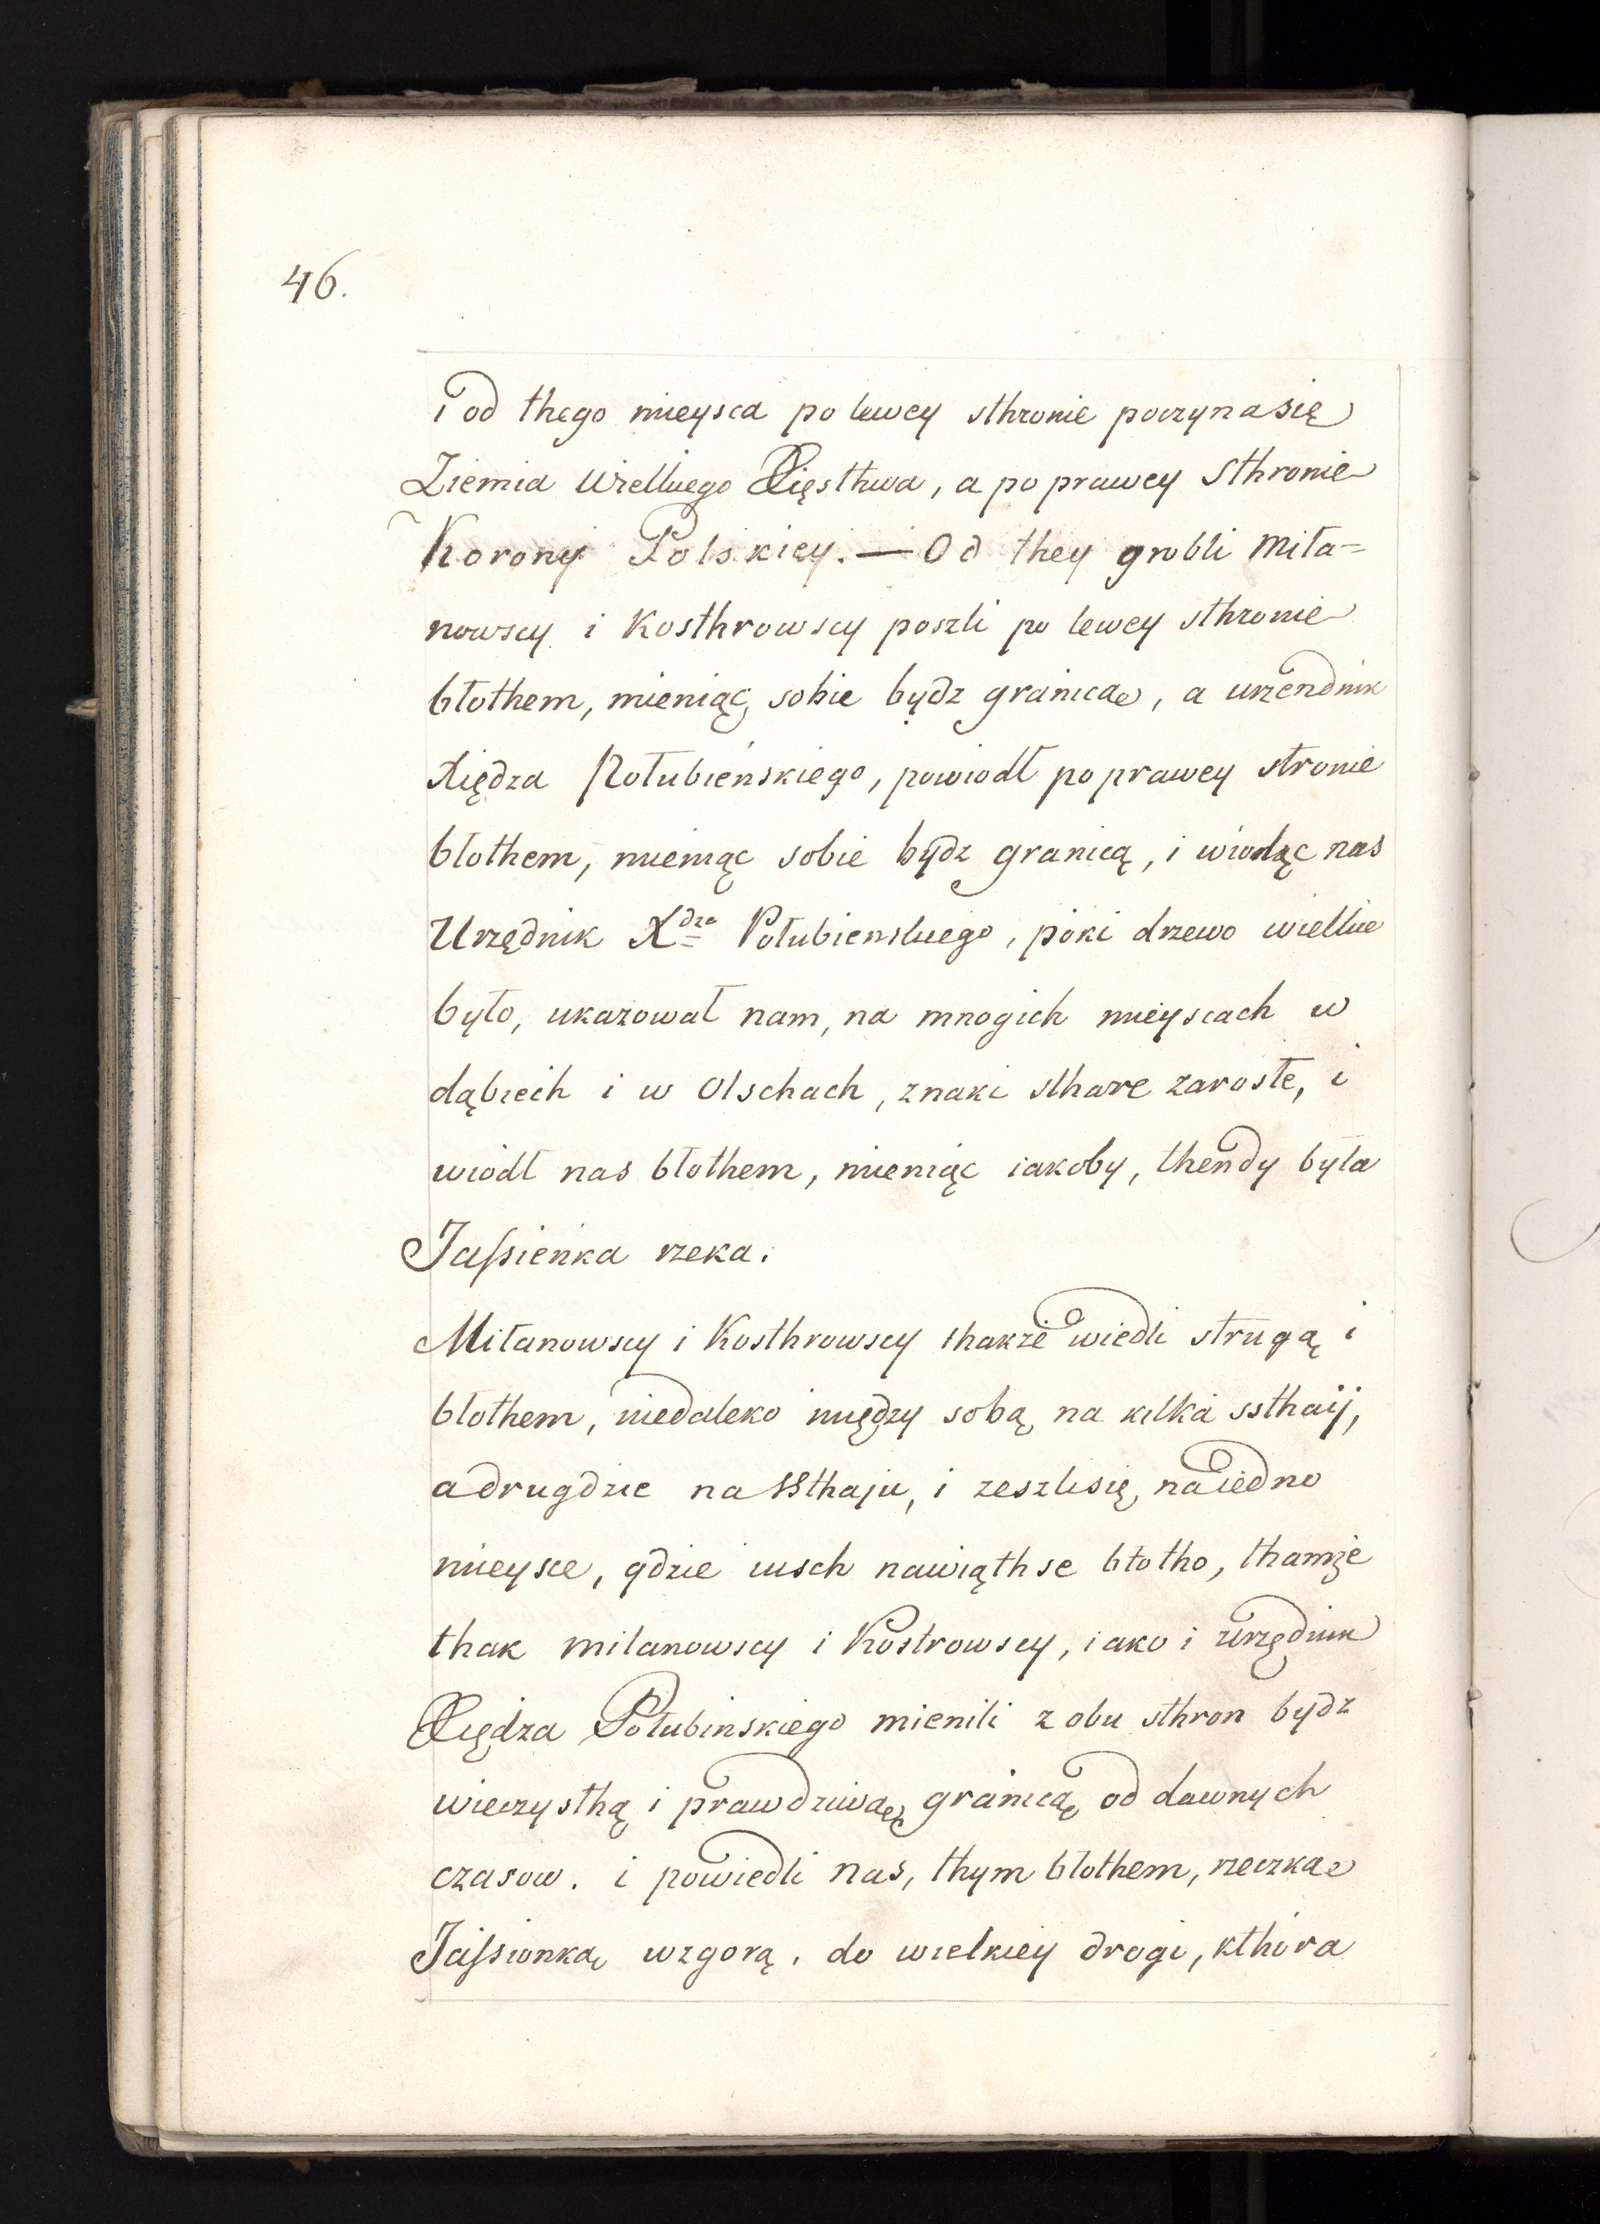 46.
i od thego mieysca po lewey sthronie poczyna się
Ziemia Wielkiego Xięsthwa, a po prawey Sthronie
Korony Polskiey. — Od they grobli Miła=
nowscy i Kosthrowscy poszli po lewey sthronie
błothem, mieniąc sobie bydz granicąe, a urzendnik
Xiędza Połubieńskiego, powiodł po prawey stronie
błothem, mieniąc sobie bydz granicą, i wiodąc nas
Urzędnik Xdza Połubienskiego, póki drzewo wielkie
było, ukazował nam, na mnogich mieyscach w
dąbiech i w Olschach, znaki sthare zarosłe, i
wiodł nas błothem, mieniąc iakoby, thendy była
Jassieńka rzeka.
Miłanowscy i Kosthrowscy thakże wiedli strugą i
błothem, niedaleko między sobą, na kilka ssthaij,
a drugdzie na ssthaju, i zeszli się, na iedno
mieysce, gdzie iusch nawiąthse błotho, thamże
thak milanowscy i Kostrowscy, iako i urzędnik
Xiędza Połubinskiego mienili z obu sthron bydz
wieczysthą i prawdziwąę granicą, od dawnych
czasow. i powiedli nas, thym błothem, rzeczkąe
Jassionką, wzgorą, do wielkiey drogi, kthóra